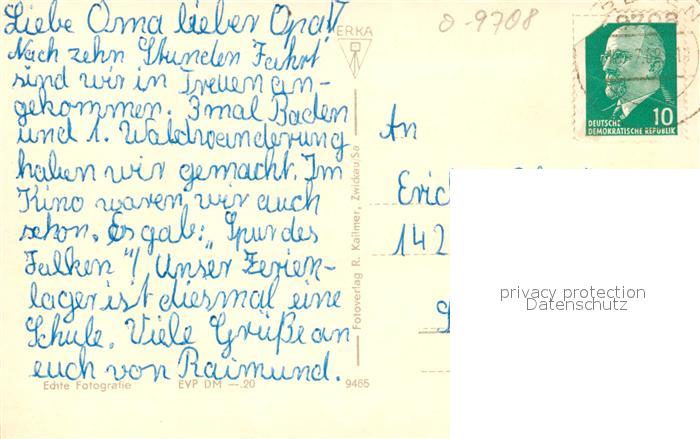 Liebe Oma lieber Opa!
Nach zehn Stunden Fahrt
sind wir in Treuen an-
gekommen. 3mal Baden
und 1. Waldwanderung
haben wir gemacht. Im
Kino waren wir auch
schon. Es gab: „Spur des
Falken"! Unser Ferien-
lager ist diesmal eine
Schule. Viele Grüße an
euch von Raimund.
Echte Fotografie EVP DM —.20 9465
ERKA
Fotoverlag R. Kallmer, Zwickau/Sa
o-9708
9708
10
DEUTSCHE
DEMOKRATISCHE REPUBLIK
An
Eric
142
privacy protection
Datenschutz